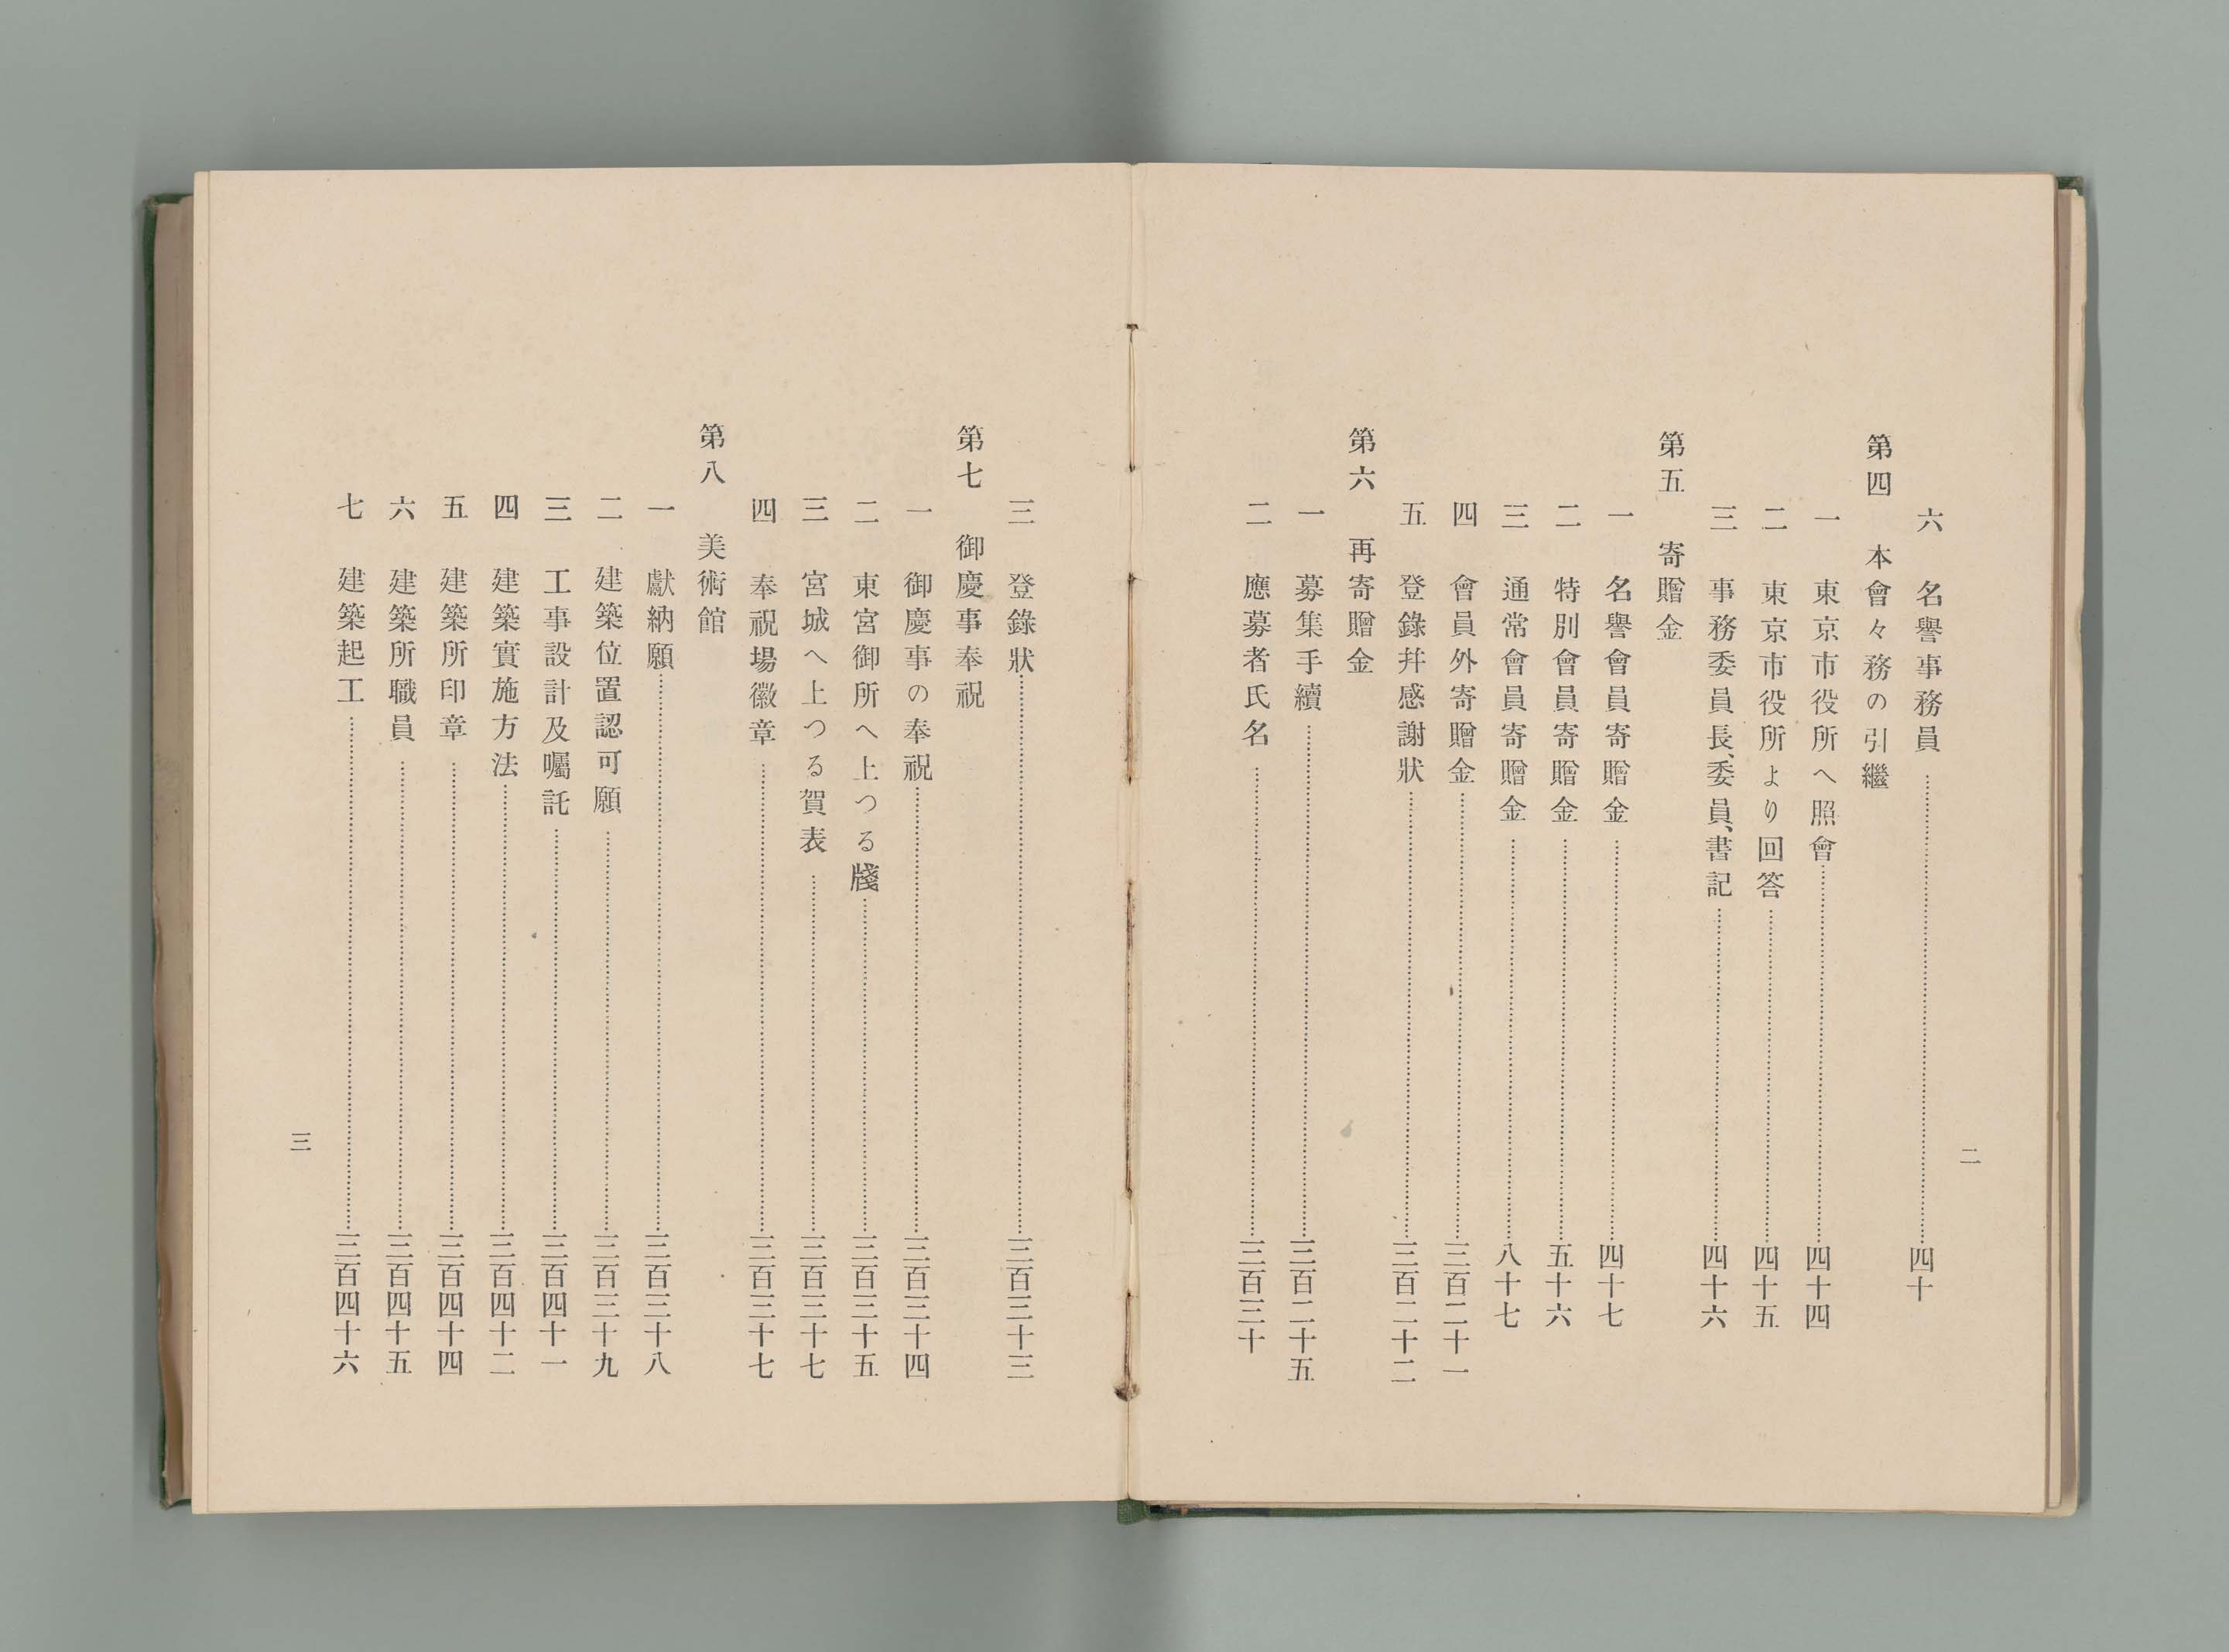 六 名譽事務員………四十
第四 本會々務の引繼
一 東京市役所へ照會………四十四
二 東京市役所より回答………四十五
三 事務委員長、委員、書記………四十六
第五 寄贈金
一 名譽會員寄贈金………四十七
二 特別會員寄贈金………五十六
三 通常會員寄贈金………八十七
四 會員外寄贈金………三百二十一
五 登錄幷感謝狀………三百二十二
第六 再寄贈金
一 募集手續………三百二十五
二 應募者氏名………三百三十
二
三 登錄狀………三百三十三
第七 御慶事奉祝
一 御慶事の奉祝………三百三十四
二 東宮御所へ上つる牋………三百三十五
三 宮城へ上つる賀表………三百三十七
四 奉祝場徽章………三百三十七
第八 美術館
一 獻納願………三百三十八
二 建築位置認可願………三百三十九
三 工事設計及囑託………三百四十一
四 建築實施方法………三百四十二
五 建築所印章………三百四十四
六 建築所職員………三百四十五
七 建築起工………三百四十六
三